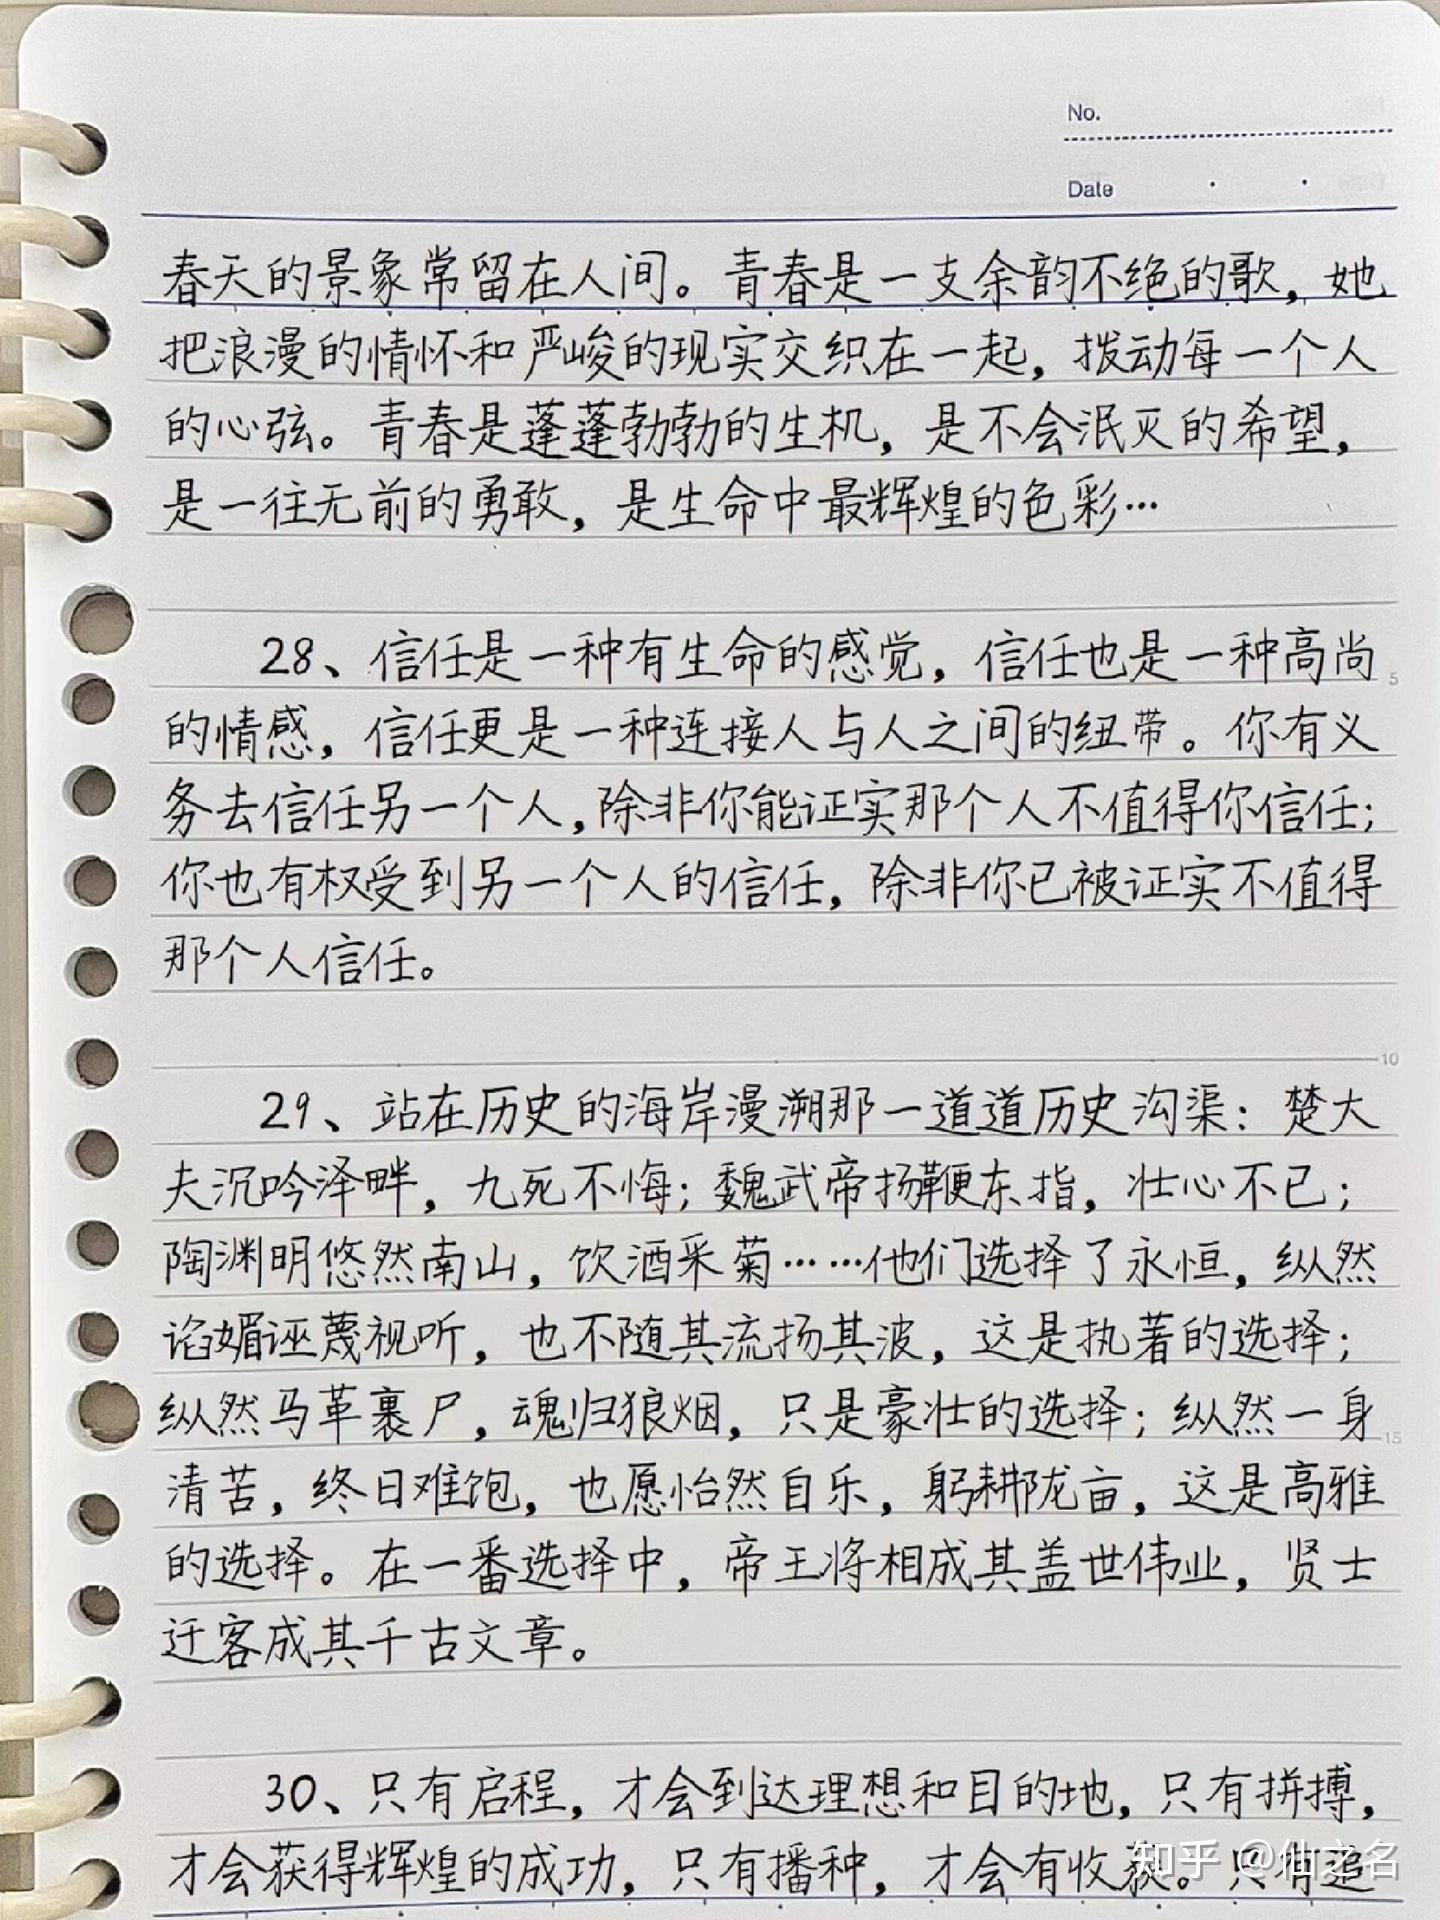 No.
Date
春天的景象常留在人间。青春是一支余韵不绝的歌，她
把浪漫的情怀和严峻的现实交织在一起，拨动每一个人
的心弦。青春是蓬蓬勃勃的生机，是不会泯灭的希望，
是一往无前的勇敢，是生命中最辉煌的色彩…
28、信任是一种有生命的感觉，信任也是一种高尚
5
的情感，信任更是一种连接人与人之间的纽带。你有义
务去信任另一个人，除非你能证实那个人不值得你信任；
你也有权受到另一个人的信任，除非你已被证实不值得
那个人信任。
10
29、站在历史的海岸漫溯那一道道历史沟渠：楚大
夫沉吟泽畔，九死不悔；魏武帝扬鞭东指，壮心不已；
陶渊明悠然南山，饮酒采菊……他们选择了永恒，纵然
谄媚诬蔑视听，也不随其流扬其波，这是执著的选择；
纵然马革裹尸，魂归狼烟，只是豪壮的选择；纵然一身
15
清苦，终日难饱，也愿怡然自乐，躬耕陇亩，这是高雅
的选择。在一番选择中，帝王将相成其盖世伟业，贤士
迁客成其千古文章。
30、只有启程，才会到达理想和目的地，只有拼搏，
才会获得辉煌的成功，只有播种，才会有收获。只有追
知乎 @仙之名